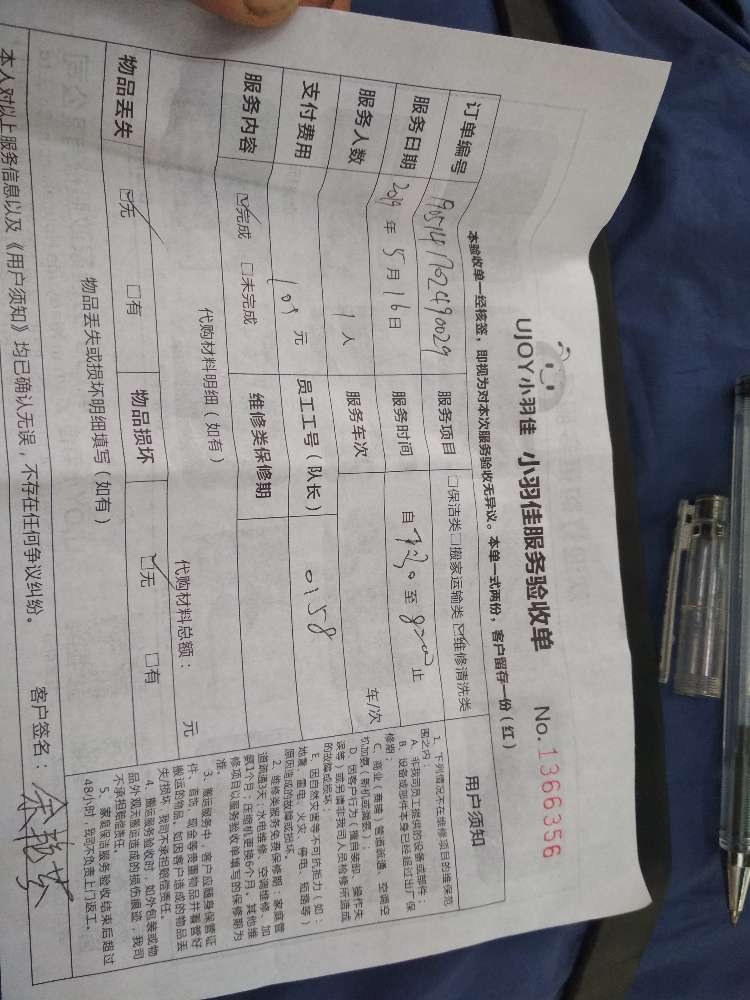 UJOY小羽佳 小羽佳服务验收单 No. 1366356
本验收单一经核签，即视为对本次服务验收无异议。本单一式两份，客户留存一份（红）
订单编号 190514170249 0029 服务项目 □保洁类□搬家运输类☑维修清洗类
服务日期 2019 年 5 月 16 日 服务时间 自 至 止
服务人数 1 人 服务车次 车/次
支付费用 109 元 员工工号（队长） 0158
服务内容 ☑完成 □未完成 维修类保修期
代购材料明细（如有）
代购材料总额： 元
物品丢失 ☑无 □有 物品损坏 ☑无 □有
物品丢失或损坏明细填写（如有）
本人对以上服务信息以及《用户须知》均已确认无误，不存在任何争议纠纷。
客户签名：
用户须知
1、下列情况不在维修项目的维保范
围之内：
A、非我司员工提供的设备或部件；
B、设备或部件本身已经超过出厂保
修期；
C、商业（商铺）管道疏通、空调空
D、因客户行为（擅自装卸、操作失
误等）或另请非我司人员检修所造成
的故障或损坏；
E、因自然灾害等不可抗拒力（如：
地震、雷电、火灾、停电、短路等）
原因造成的故障或损坏。
2、维修类服务免费保修期：家庭管
道疏通3天；水电维修、空调维修、加
氨1个月；压缩机更换6个月。其他维
修项目以服务验收单填写的保修期为
准。
3、搬运服务中，客户应随身保管证
件、首饰、现金等贵重物品并看管好
搬运的物品。如因客户造成的物品丢
失/损坏，我司不承担赔偿责任。
4、搬运服务验收时，如外包装或物
品外观无搬运造成的损伤痕迹，我司
不承担赔偿责任。
5、家庭保洁服务验收结束后超过
48小时，我司不负责上门返工。